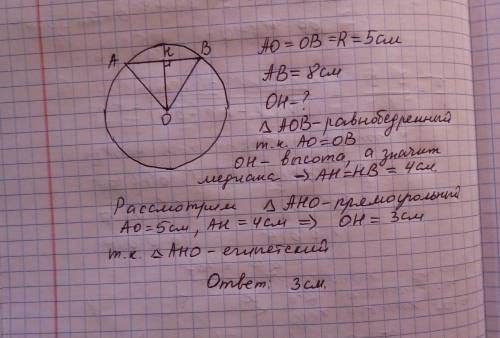 A
H
B
O
AO = OB = R = 5см
AB = 8см
OH - ?
△ AOB - равнобедренный
т.к. AO = OB
OH - высота, а значит
медиана → AH = HB = 4см.
Рассмотрим △ AHO - прямоугольный
AO = 5см, AH = 4см ⟹ OH = 3см
т.к. △ AHO - египетский
Ответ: 3см.